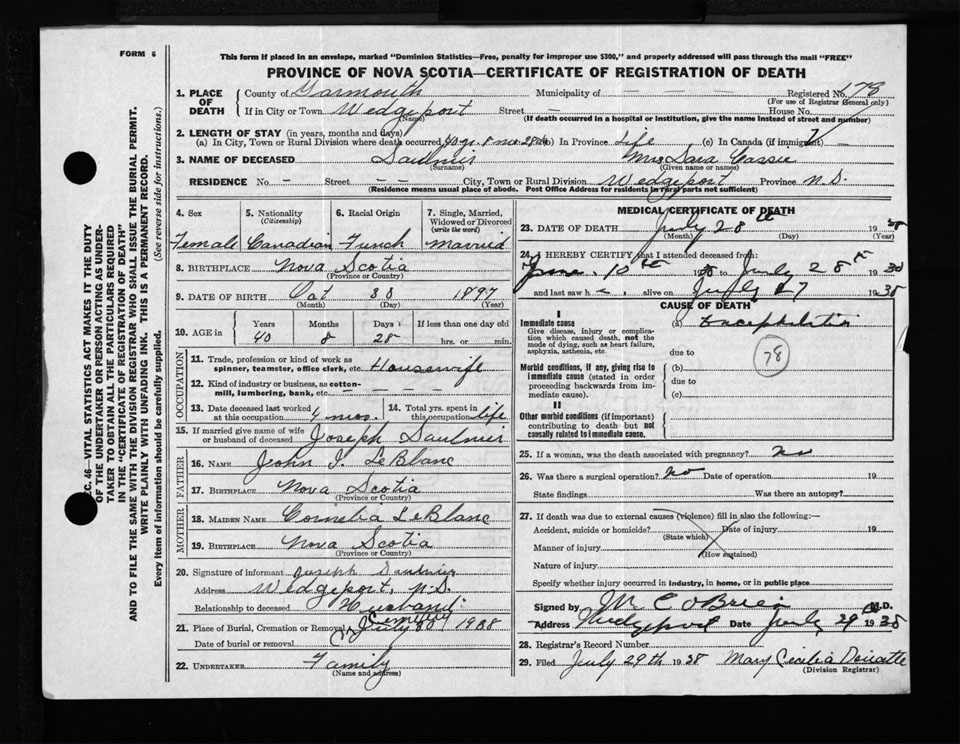 FORM 6
This form if placed in an envelope, marked "Dominion Statistics—Free, penalty for improper use $300," and properly addressed will pass through the mail "FREE"
PROVINCE OF NOVA SCOTIA—CERTIFICATE OF REGISTRATION OF DEATH
SEC. 46—VITAL STATISTICS ACT MAKES IT THE DUTY
OF THE UNDERTAKER OR PERSON ACTING AS UNDER-
TAKER TO OBTAIN ALL THE PARTICULARS REQUIRED
IN THE "CERTIFICATE OF REGISTRATION OF DEATH"
AND TO FILE THE SAME WITH THE DIVISION REGISTRAR WHO SHALL ISSUE THE BURIAL PERMIT.
WRITE PLAINLY WITH UNFADING INK. THIS IS A PERMANENT RECORD.
Every item of information should be carefully supplied. (See reverse side for instructions.)
1. PLACE OF DEATH County of Yarmouth Municipality of — — — — Registered No. 178
(For use of Registrar General only)
If in City or Town Wedgeport Street — House No.
(Name) (If death occurred in a hospital or institution, give the name instead of street and number)
2. LENGTH OF STAY (in years, months and days)
(a) In City, Town or Rural Division where death occurred 40 yr. 8 mos 28 d (b) In Province Life (c) In Canada (if immigrant) —
3. NAME OF DECEASED Saulnier Mrs Sara Cassie
(Surname) (Given name or names)
RESIDENCE No. — Street — City, Town or Rural Division Wedgeport Province N.S.
(Residence means usual place of abode. Post Office Address for residents in rural parts not sufficient)
4. Sex Female
5. Nationality (Citizenship) Canadian
6. Racial Origin French
7. Single, Married, Widowed or Divorced (write the word) Married
8. BIRTHPLACE Nova Scotia
(Province or Country)
9. DATE OF BIRTH Oct 30 1897
(Month) (Day) (Year)
10. AGE in Years 40 Months 8 Days 28 If less than one day old hrs. or min.
OCCUPATION
11. Trade, profession or kind of work as spinner, teamster, office clerk, etc. Housewife
12. Kind of industry or business, as cotton-mill, lumbering, bank, etc. — — —
13. Date deceased last worked at this occupation 4 mos.
14. Total yrs. spent in this occupation life
15. If married give name of wife or husband of deceased Joseph Saulnier
FATHER
16. NAME John J. LeBlanc
17. BIRTHPLACE Nova Scotia
(Province or Country)
MOTHER
18. MAIDEN NAME Cornelia LeBlanc
19. BIRTHPLACE Nova Scotia
(Province or Country)
20. Signature of informant Joseph Saulnier
Address Wedgeport, N.S.
Relationship to deceased Husband
21. Place of Burial, Cremation or Removal Cemetery
Date of burial or removal July 30 1938
22. UNDERTAKER Family
(Name and address)
MEDICAL CERTIFICATE OF DEATH
23. DATE OF DEATH July 28th 1938
(Month) (Day) (Year)
24. I HEREBY CERTIFY that I attended deceased from:
10th 1938 to July 28th 1938
and last saw her alive on July 27 1938
CAUSE OF DEATH
I
Immediate cause (a) Encephalitis
Give disease, injury or complication which caused death, not the mode of dying, such as heart failure, asphyxia, asthenia, etc.
due to
78
Morbid conditions, if any, giving rise to immediate cause (stated in order proceeding backwards from immediate cause). (b)
due to
(c)
II
Other morbid conditions (if important) contributing to death but not causally related to immediate cause.
25. If a woman, was the death associated with pregnancy? No
26. Was there a surgical operation? No Date of operation 19
State findings Was there an autopsy?
27. If death was due to external causes (violence) fill in also the following:—
Accident, suicide or homicide? Date of injury 19
(State which)
Manner of injury
(How sustained)
Nature of injury
Specify whether injury occurred in industry, in home, or in public place
Signed by M C O'Brien M.D.
Address Wedgeport Date July 29 1938
28. Registrar's Record Number
29. Filed July 29th 1938 Mary Cecilia Doucette
(Division Registrar)